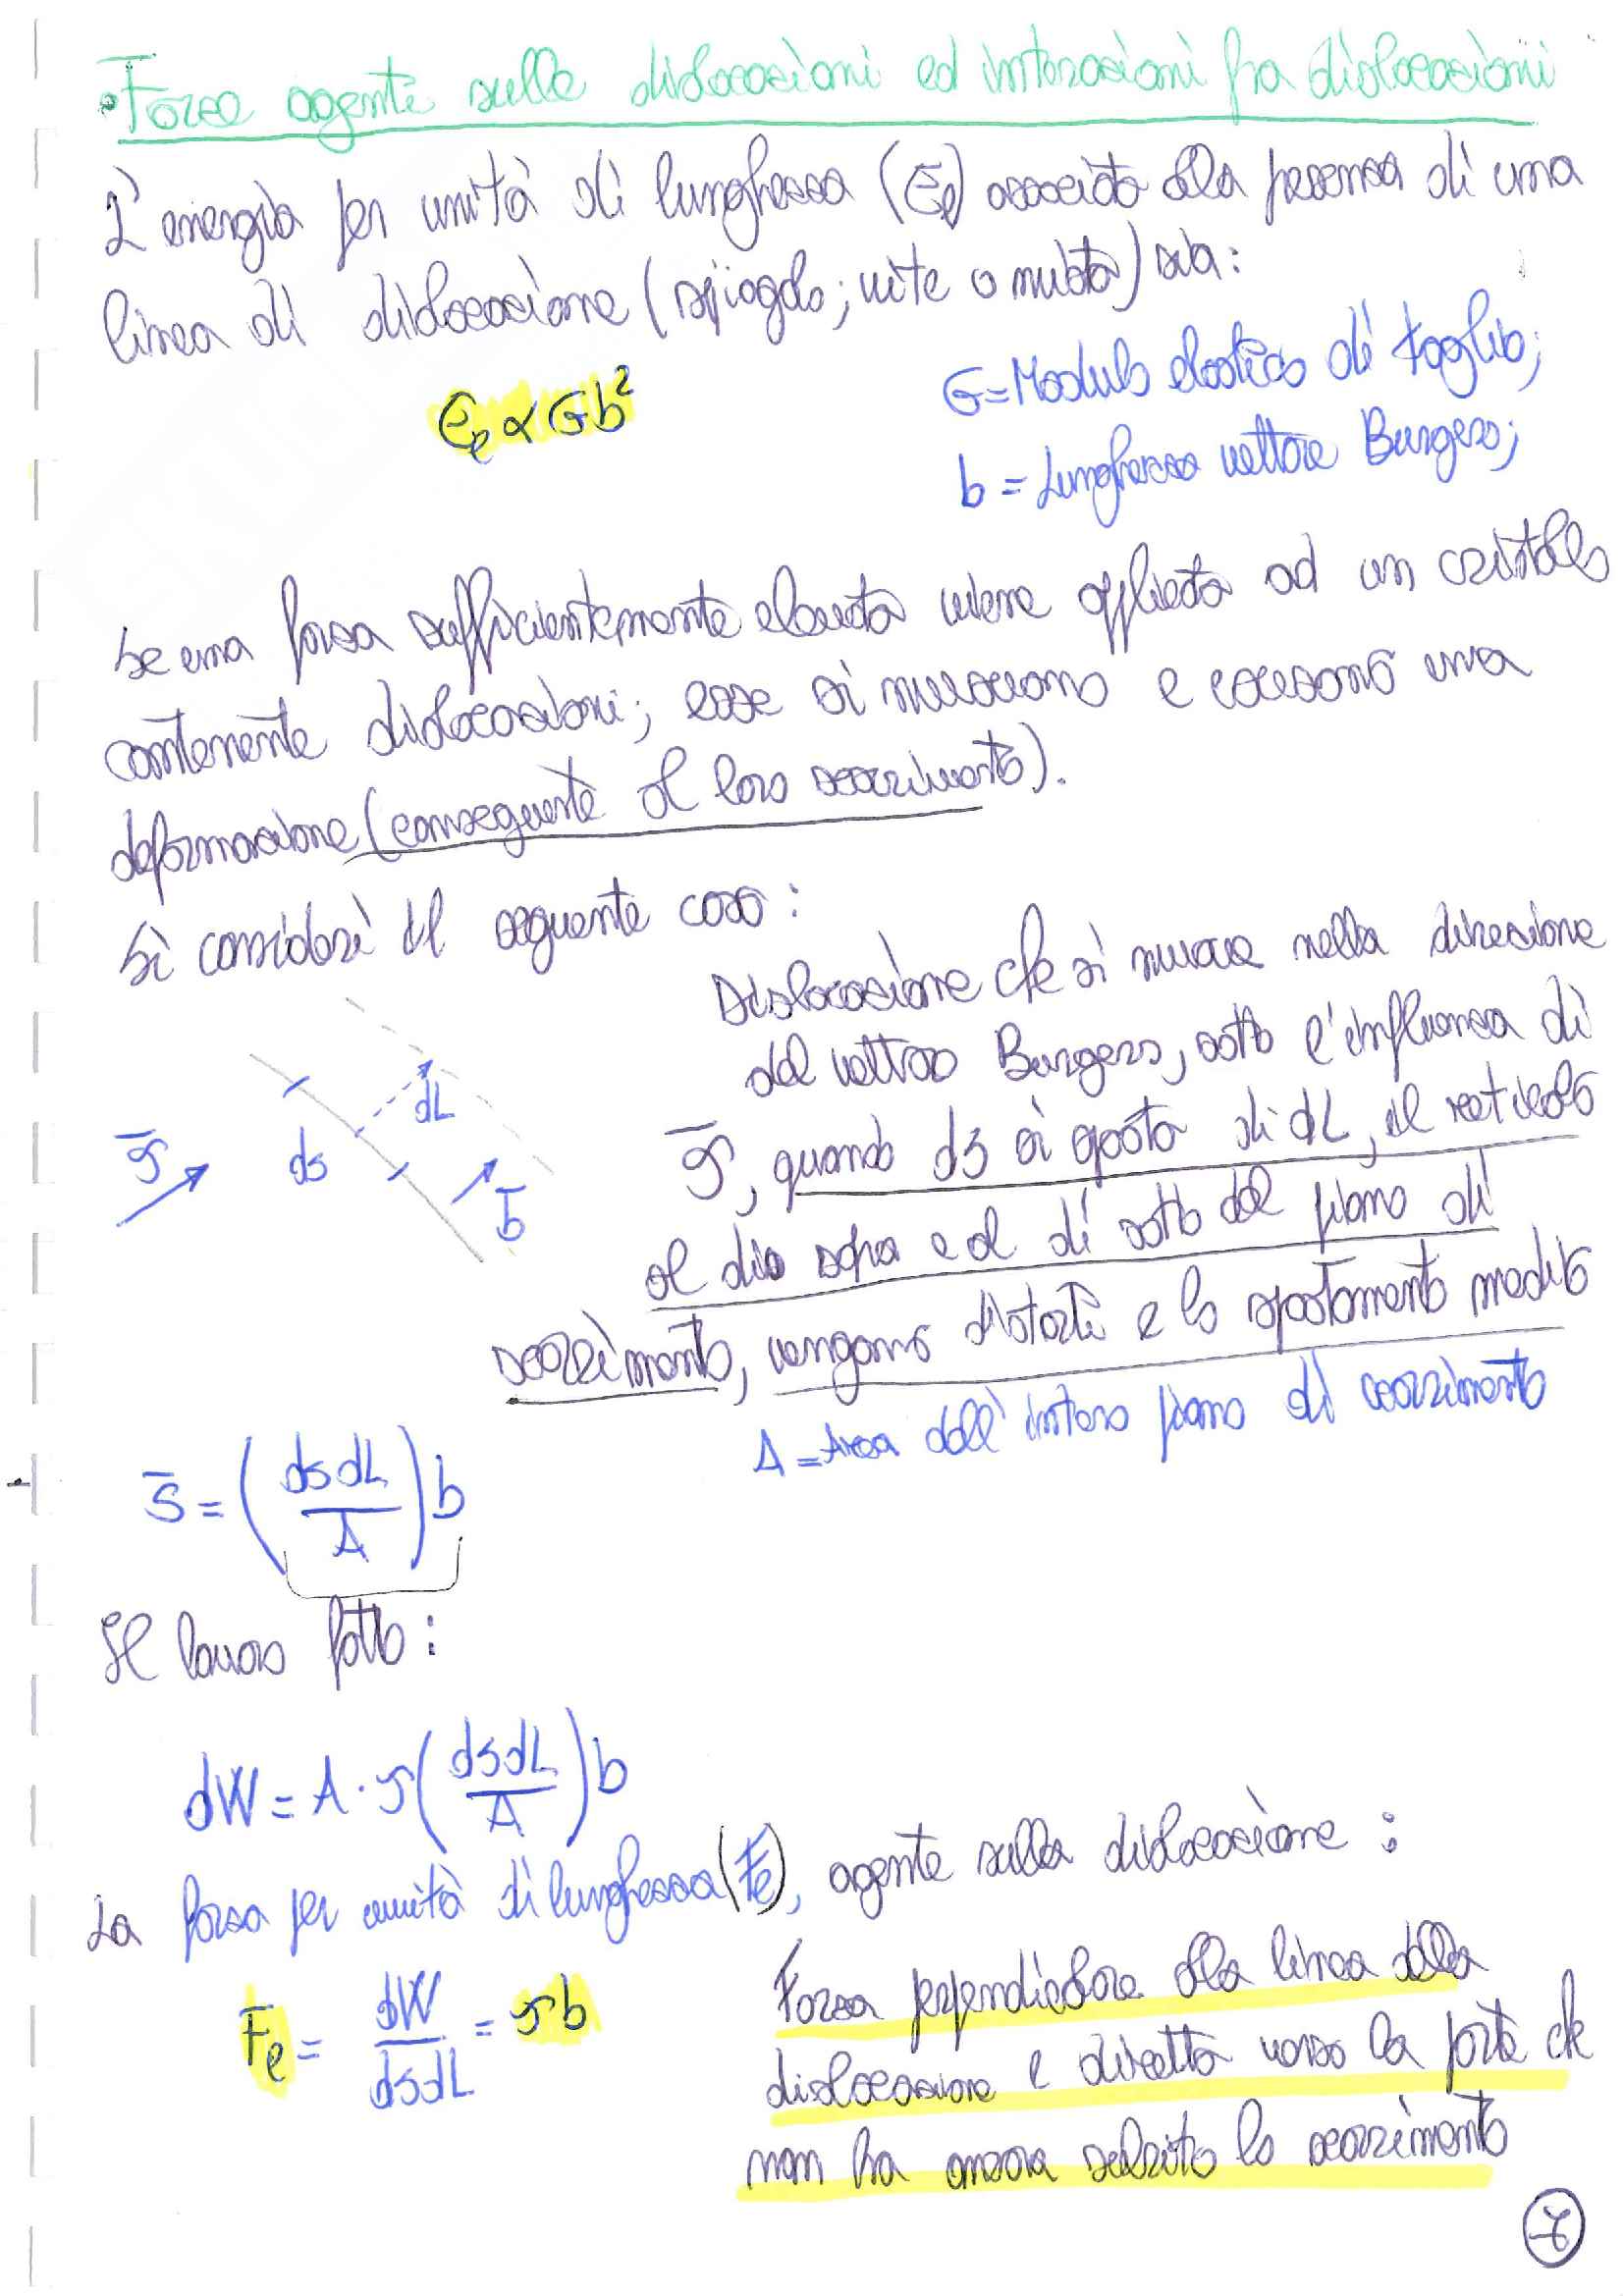 • Forze agenti sulle dislocazioni ed interazioni fra dislocazioni
L'energia per unità di lunghezza (Ee) associata alla presenza di una
linea di dislocazione (spigolo; vite o mista) sia:
Ee ∝ Gb²
G = Modulo elastico di taglio;
b = Lunghezza vettore Burgers;
Se una forza sufficientemente elevata viene applicata ad un cristallo
contenente dislocazioni; esse si muovono e causano una
deformazione (conseguente al loro scorrimento).
Si consideri il seguente caso:
Dislocazione che si muove nella direzione
del vettore Burgers, sotto l'influenza di
τ̄, quando ds si sposta di dL, il reticolo
al di sopra e al di sotto del piano di
scorrimento, vengono distorti e lo spostamento medio
τ̄
ds
dL
b̄
A = Area dell'intero piano di scorrimento
S̄ = (dsdL/A)b
Il lavoro fatto:
dW = A · τ(dsdL/A)b
La forza per unità di lunghezza (Fe), agente sulla dislocazione:
Fe = dW/dsdL = τb
Forza perpendicolare alla linea della
dislocazione e diretta verso la parte che
non ha ancora subito lo scorrimento
7